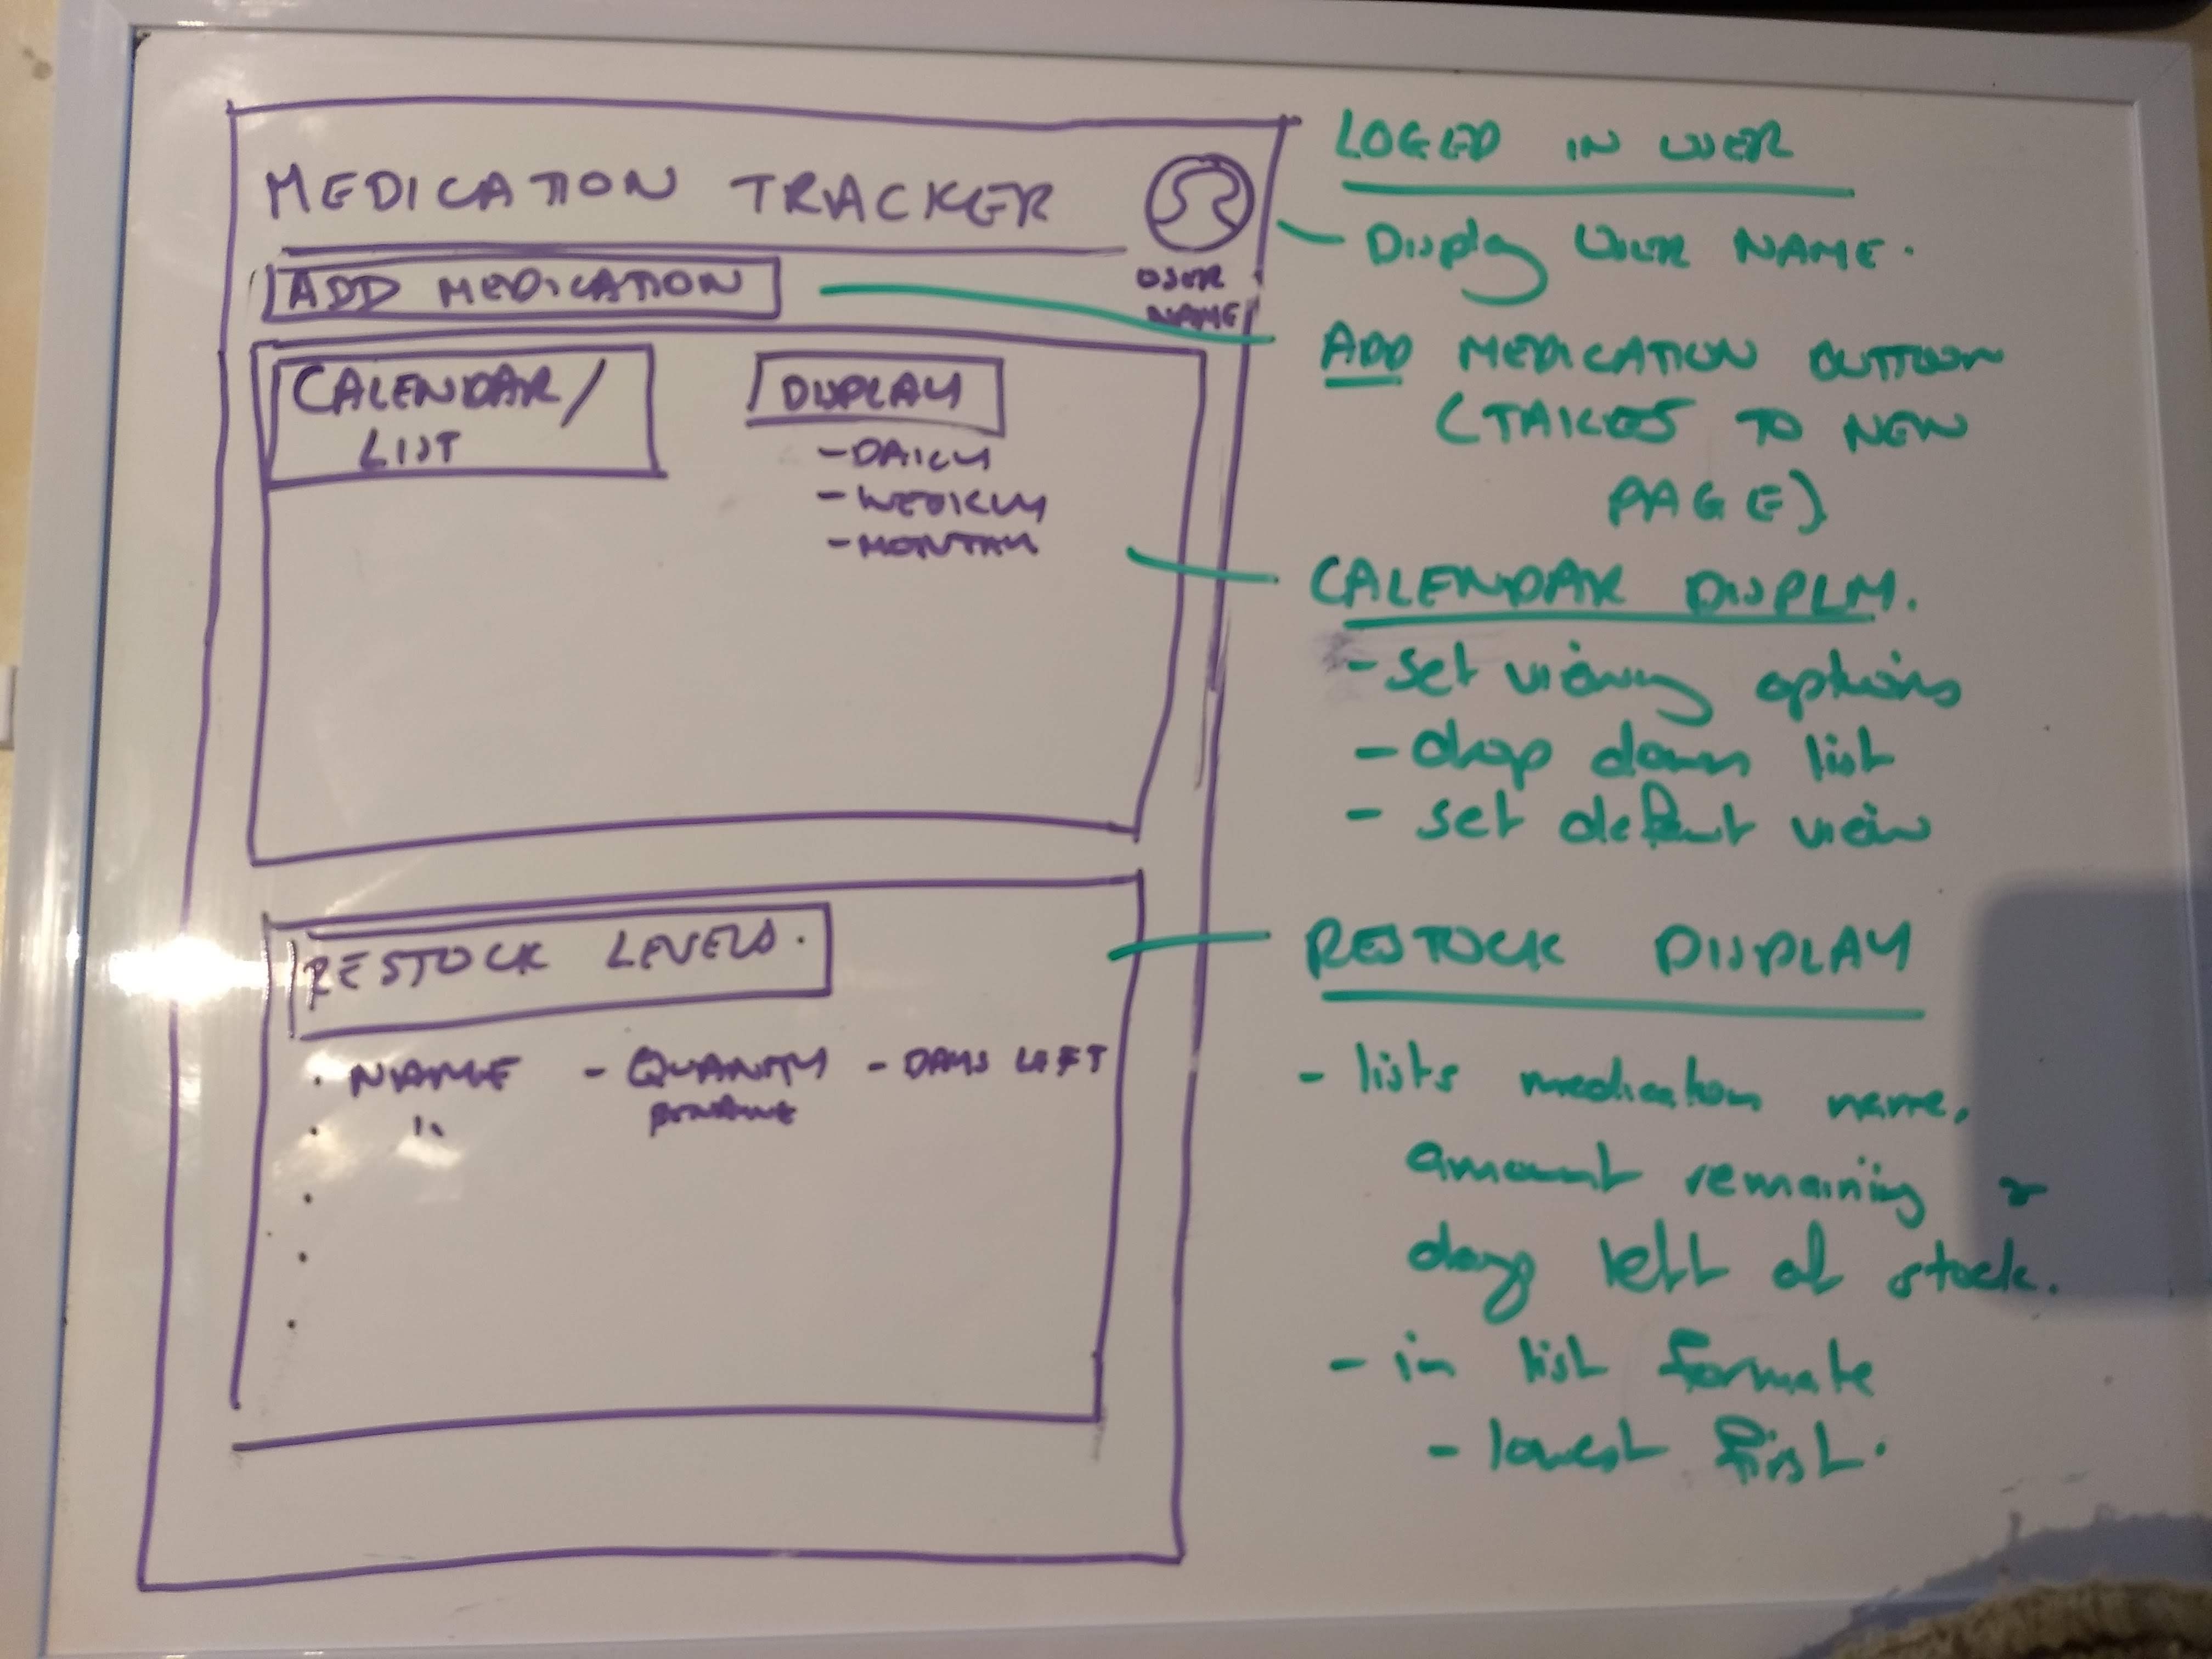 MEDICATION TRACKER
USER
NAME
ADD MEDICATION
CALENDAR/
LIST
DISPLAY
- DAILY
- WEEKLY
- MONTHLY
RESTOCK LEVELS.
. NAME - QUANTITY - DAYS LEFT
. "
LOGED IN USER
- Display USER NAME.
ADD MEDICATION BUTTON
(TAKES TO NEW
PAGE)
CALENDAR DISPLAY.
- set viewing options
- drop down list
- set default view
RESTOCK DISPLAY
- lists medication name,
amount remaining &
days left of stock.
- in list formate
- lowest first.